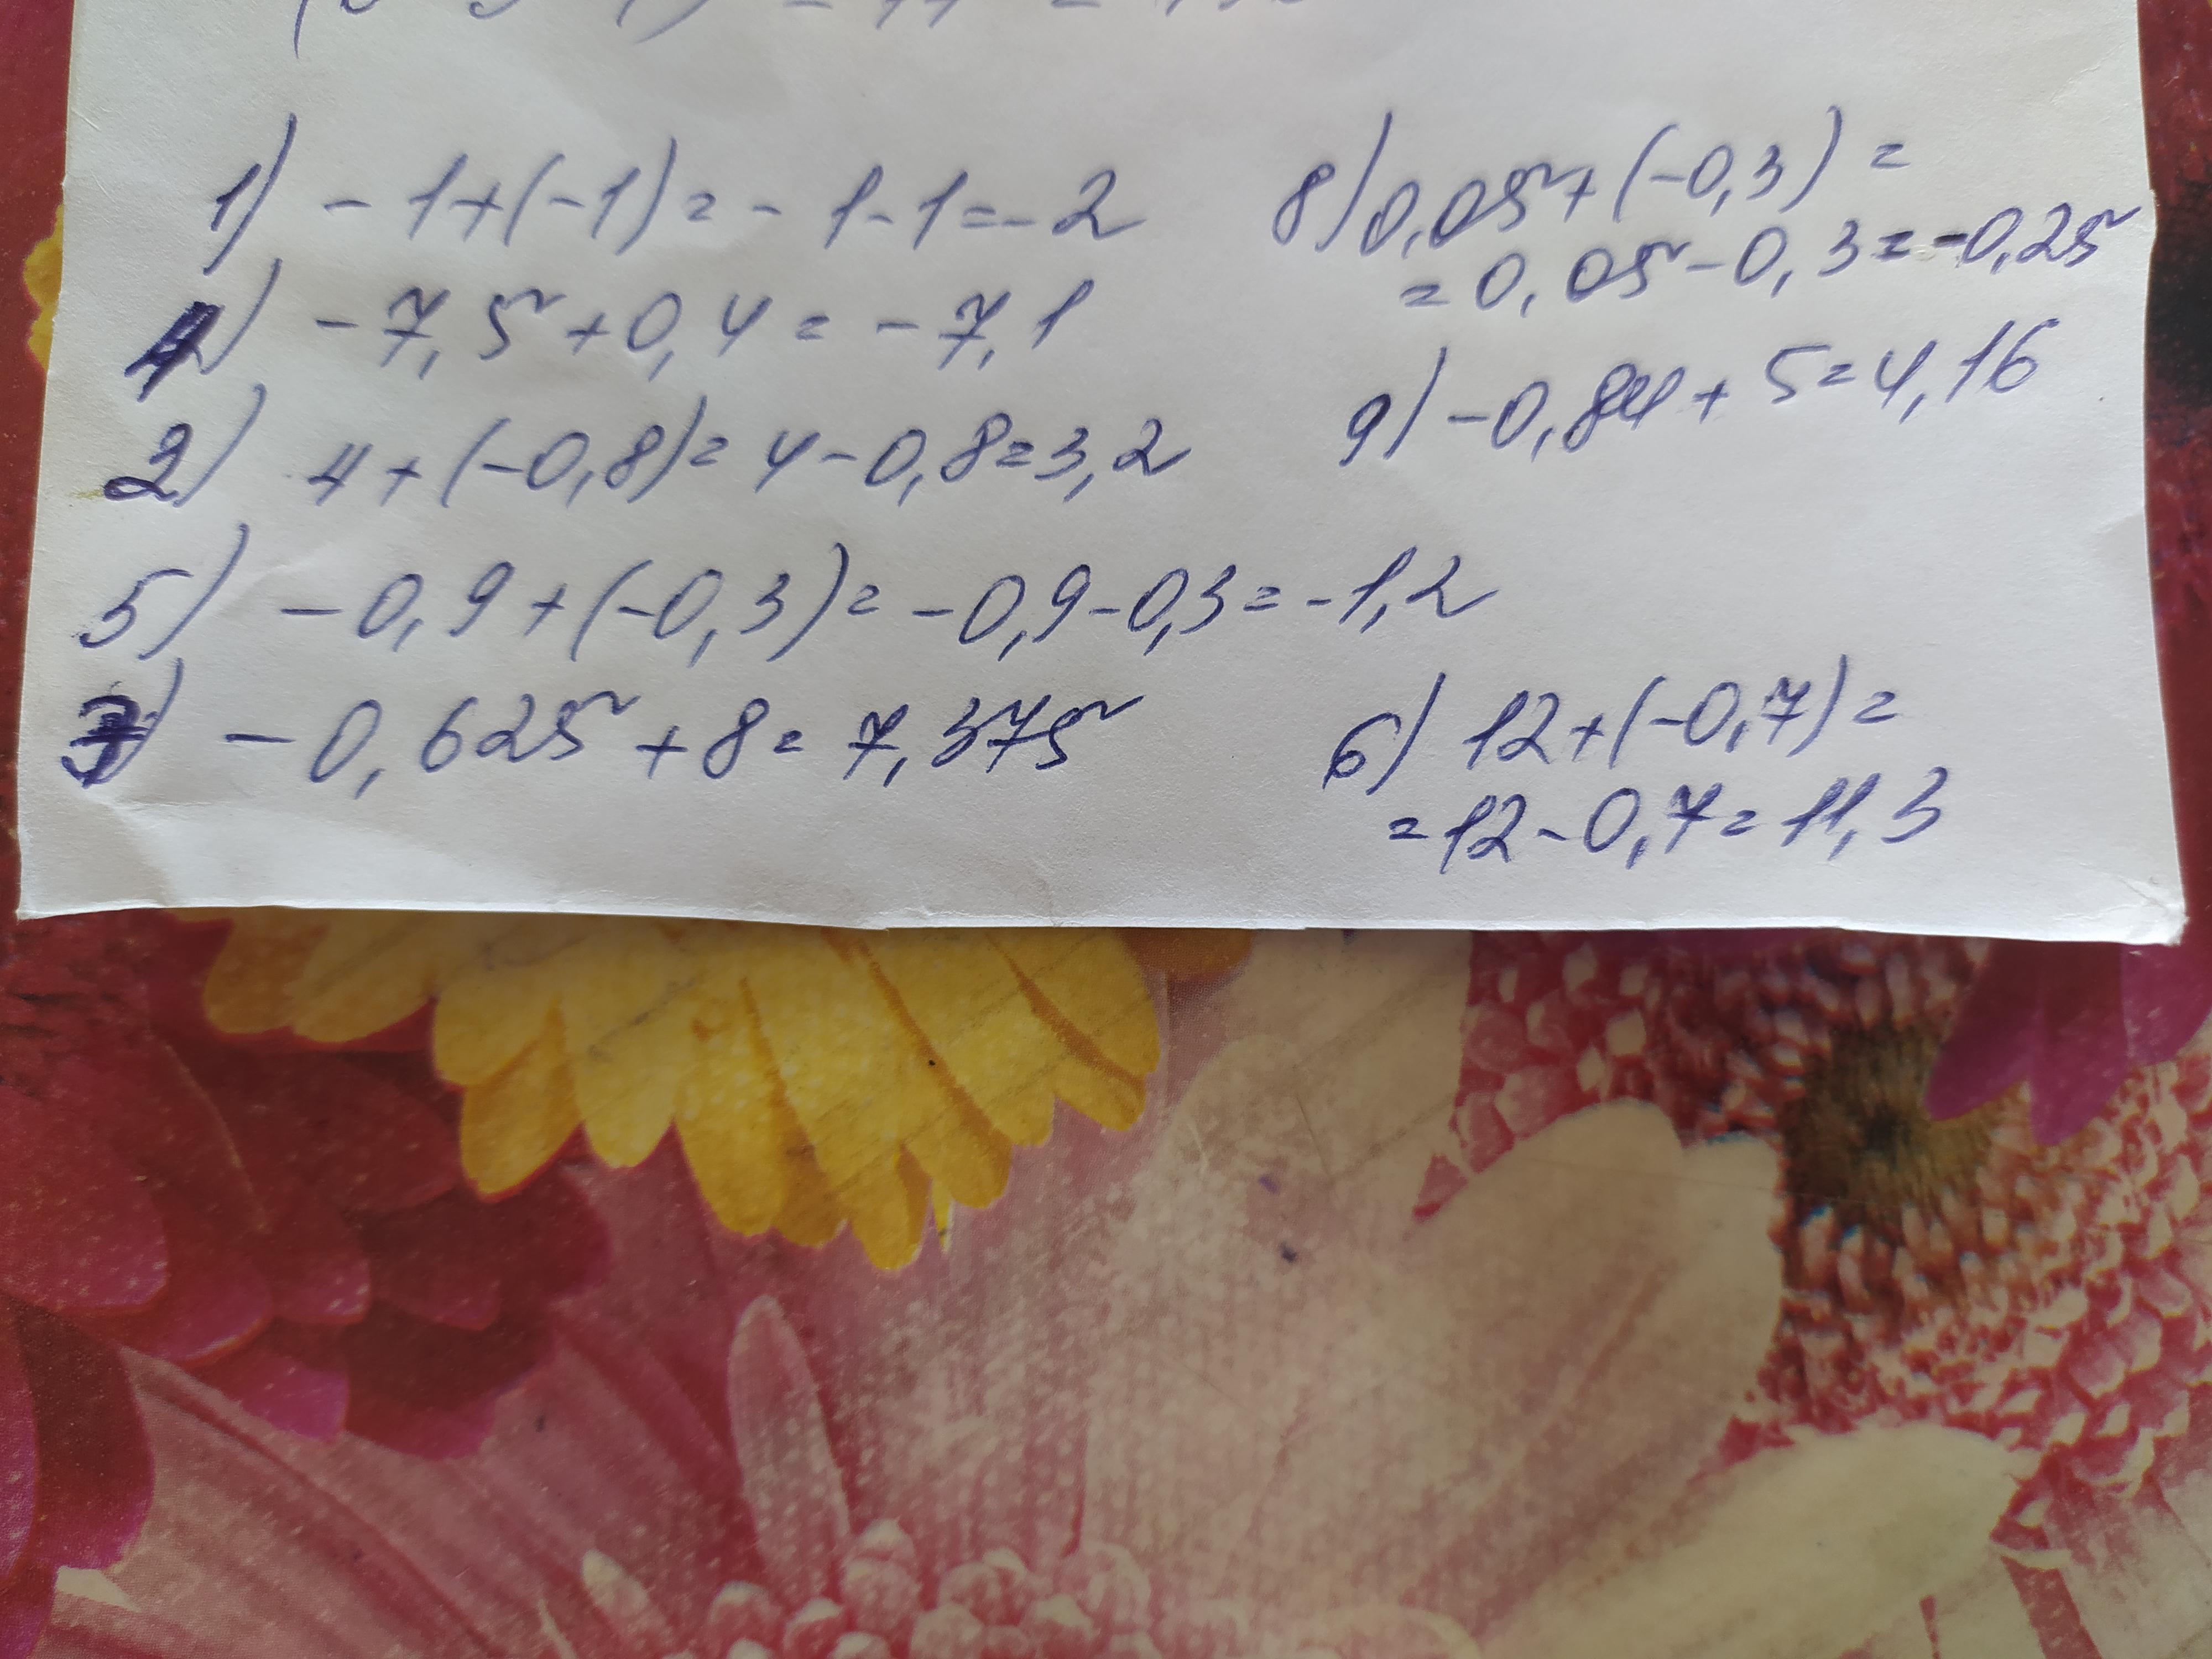 1) - 1+(-1)= - 1-1=-2
4) - 7,5+0,4= - 7,1
2) 4+(-0,8)= 4-0,8=3,2
5) - 0,9+(-0,3)= -0,9-0,3=-1,2
- 0,625+8= 7,375
8) 0,05+(-0,3)=
=0,05-0,3=-0,25
9) -0,84+5=4,16
6) 12+(-0,7)=
=12-0,7=11,3